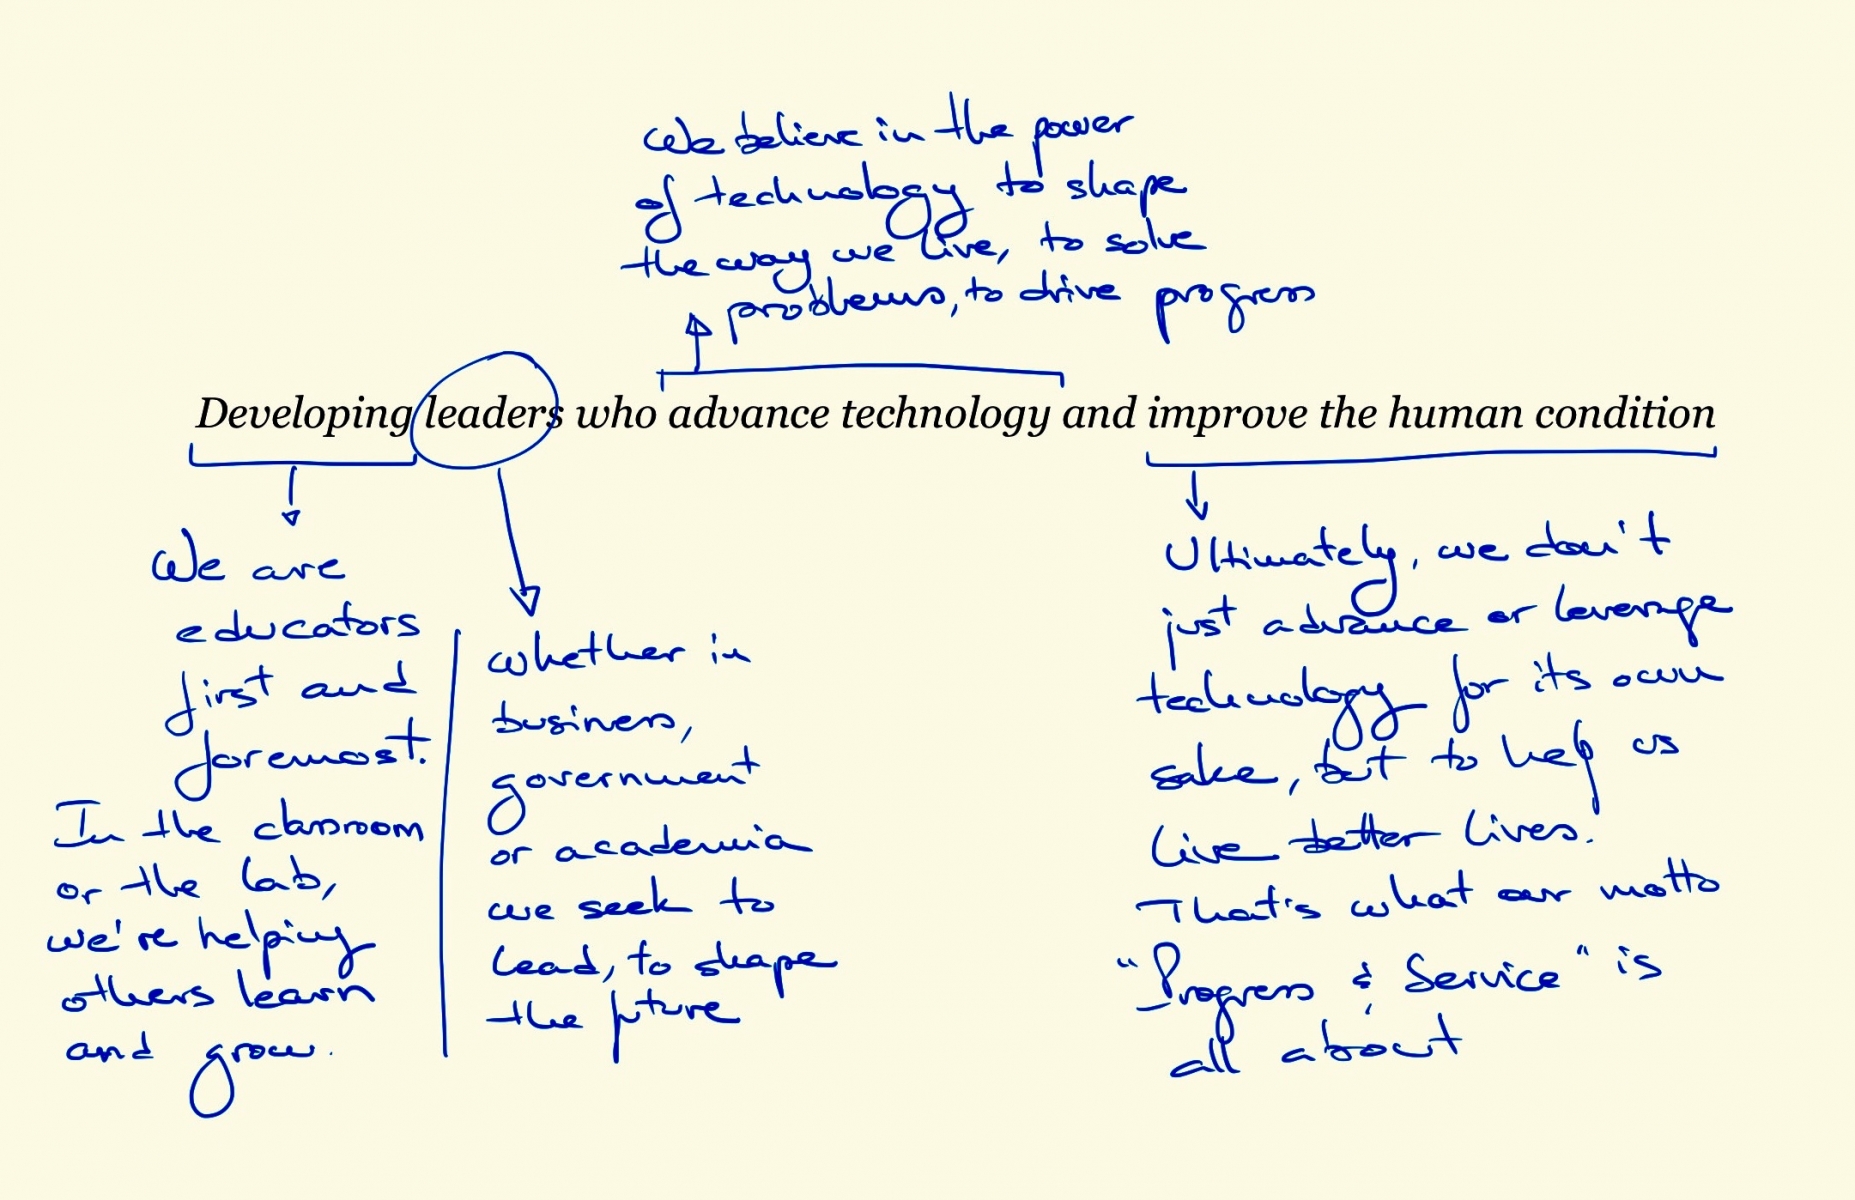 We believe in the power
of technology to shape
the way we live, to solve
problems, to drive progress
Developing leaders who advance technology and improve the human condition
We are
educators
first and
foremost.
In the classroom
or the lab,
we're helping
others learn
and grow.
whether in
business,
government
or academia
we seek to
lead, to shape
the future
Ultimately, we don't
just advance or leverage
technology for its own
sake, but to help us
live better lives.
That's what our motto
"Progress & Service" is
all about